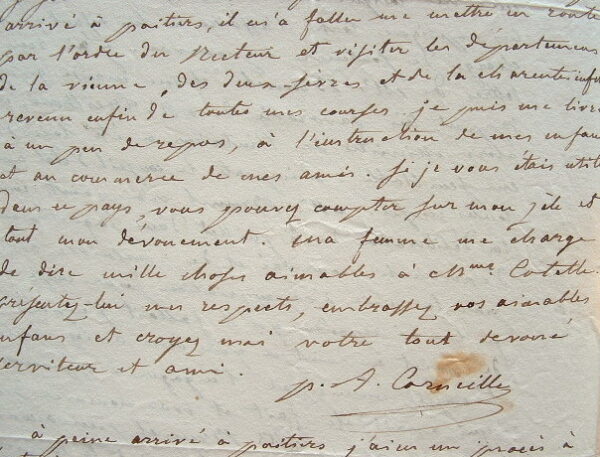 arrivé à poitiers, il m'a fallu me mettre en route
par l'ordre du Recteur et visiter les départemens
de la vienne, des deux-sèvres et de la charente infre
revenu enfin de toutes mes courses je puis me livrer
à un peu de repos, à l'instruction de mes enfans
et au commerce de mes amis. Si je vous étais utile
dans ce pays, vous pouvez compter sur mon zèle et
tout mon dévouement. ma femme me charge
de dire mille choses aimables à Mme Cotelle.
présentez-lui mes respects, embrassez vos aimables
enfans et croyez moi votre tout dévoué
serviteur et ami.
p. A. Corneille
à peine arrivé à poitiers j'ai eu un procès à